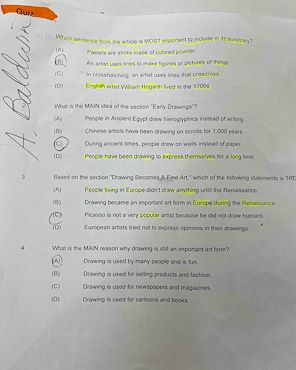 Quiz
A. Baldwin
Which sentence from the article is MOST important to include in its summary?
(A) Pastels are sticks made of colored powder.
(B) An artist uses lines to make figures or pictures of things.
(C) In crosshatching, an artist uses lines that crisscross.
(D) English artist William Hogarth lived in the 1700s.
What is the MAIN idea of the section "Early Drawings"?
(A) People in Ancient Egypt drew hieroglyphics instead of writing.
(B) Chinese artists have been drawing on scrolls for 1,000 years.
(C) During ancient times, people drew on walls instead of paper.
(D) People have been drawing to express themselves for a long time.
3 Based on the section "Drawing Becomes A Fine Art," which of the following statements is
(A) People living in Europe didn't draw anything until the Renaissance.
(B) Drawing became an important art form in Europe during the Renaissance.
(C) Picasso is not a very popular artist because he did not draw humans.
(D) European artists tried not to express opinions in their drawings.
4 What is the MAIN reason why drawing is still an important art form?
(A) Drawing is used by many people and is fun.
(B) Drawing is used for selling products and fashion.
(C) Drawing is used for newspapers and magazines.
(D) Drawing is used for cartoons and books.